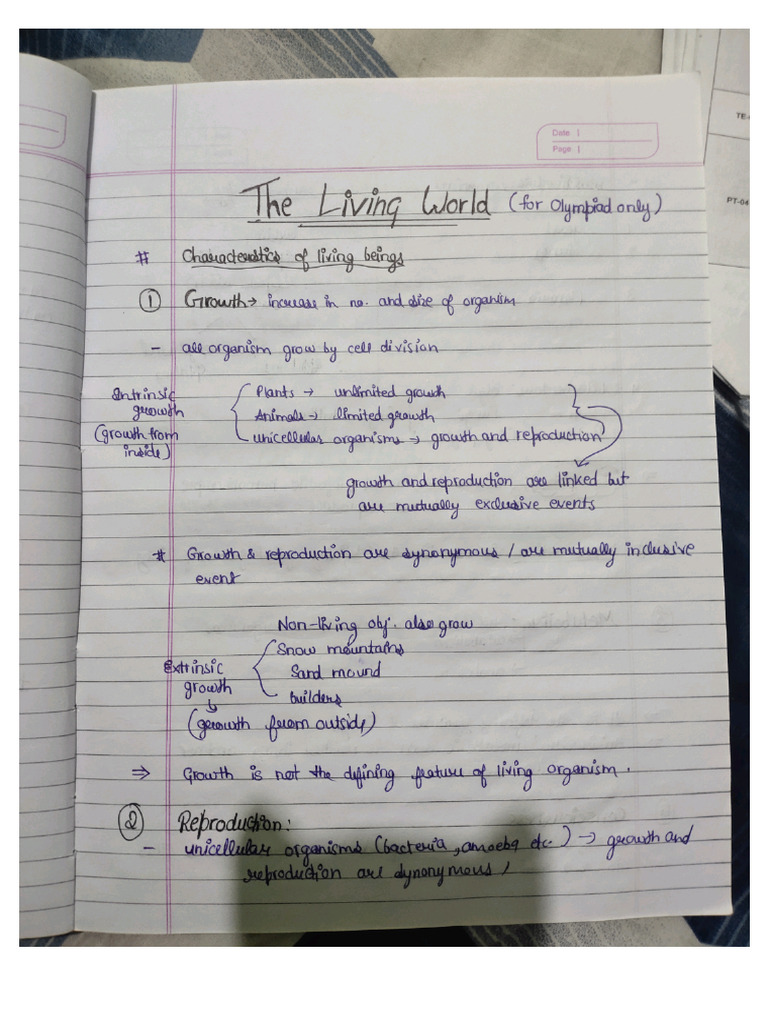 Date |
Page |
TE-
PT-04
The Living World (for Olympiad only)
# Characteristics of living beings
① Growth → increase in no. and size of organism
- all organism grow by cell division
Intrinsic growth (growth from inside)
Plants → unlimited growth
Animals → limited growth
unicellular organisms → growth and reproduction
growth and reproduction are linked but
are mutually exclusive events
# Growth & reproduction are synonymous / are mutually inclusive
event
Non-living obj. also grow
Extrinsic growth
↓
(growth from outside)
Snow mountains
Sand mound
builders
⇒ Growth is not the defining feature of living organism.
② Reproduction:
- unicellular organisms (bacteria, amoeba etc.) → growth and
reproduction are synonymous /